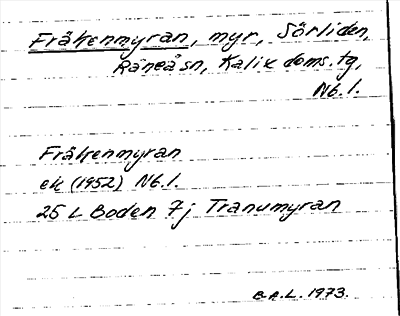 Fräkenmyran, myr, Sörliden,
Råneå sn, Kalix doms. tg,
Nb. l.
Fräkenmyran
ek (1952) Nb. l.
25 L Boden 7j Tranumyran
C.A.L. 1973.